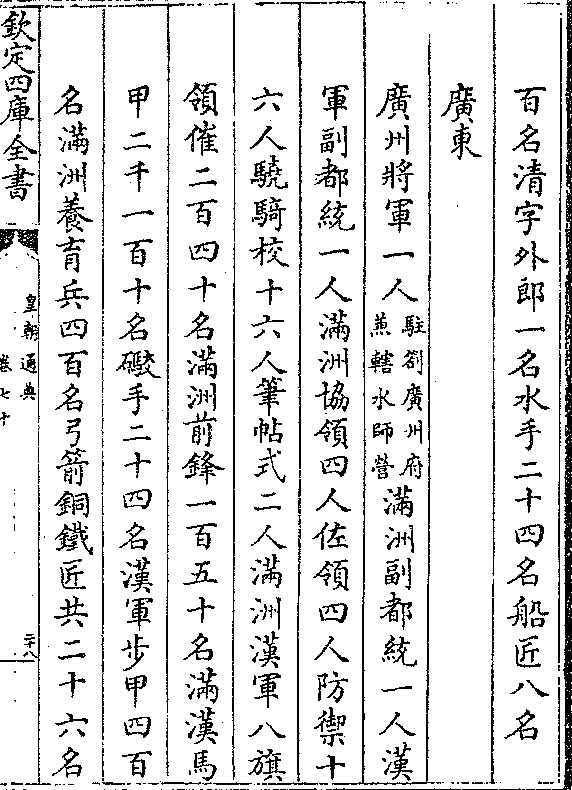 百名清字外郎一名水手二十四名船匠八名
廣東
廣州將軍一人駐劄廣州府兼轄水師營滿洲副都統一人漢
軍副都統一人滿洲協領四人佐領四人防禦十
六人驍騎校十六人筆帖式二人滿洲漢軍八旗
領催二百四十名滿洲前鋒一百五十名滿漢馬
甲二千一百十名礮手二十四名漢軍步甲四百
名滿洲養育兵四百名弓箭銅鐵匠共二十六名
欽定四庫全書
皇朝通典
卷七十
二十八